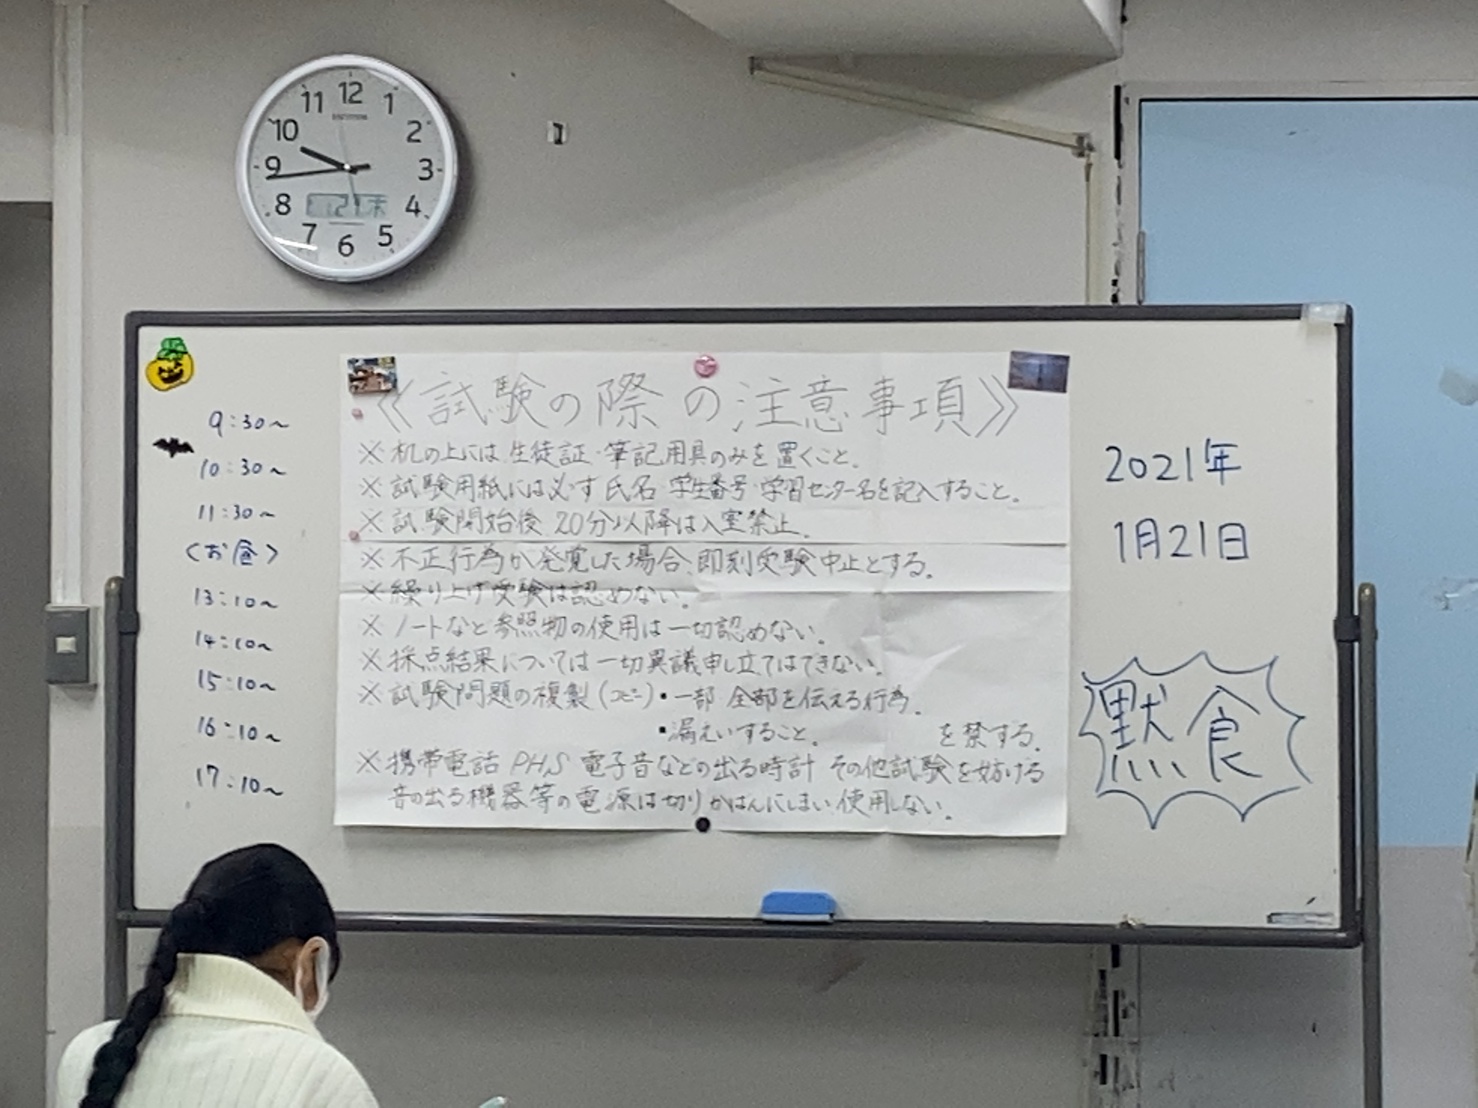 12
1
2
3
4
5
6
7
8
9
10
11
9:30~
10:30~
11:30~
<お昼>
13:10~
14:10~
15:10~
16:10~
17:10~
《試験の際の注意事項》
※机の上には生徒証・筆記用具のみを置くこと。
※試験用紙には必ず氏名・学生番号・学習センター名を記入すること。
※試験開始後20分以降は入室禁止。
※不正行為が発覚した場合、即刻受験中止とする。
※繰り上げ受験は認めない。
※ノートなど参照物の使用は一切認めない。
※採点結果については一切異議申し立てはできない。
※試験問題の複製(コピー)・一部 全部を伝える行為。
・漏えいすること。 を禁する。
※携帯電話 PHS 電子音などの出る時計 その他試験を妨げる
音の出る機器等の電源は切りかばんにしまい使用しない。
2021年
1月21日
黙食